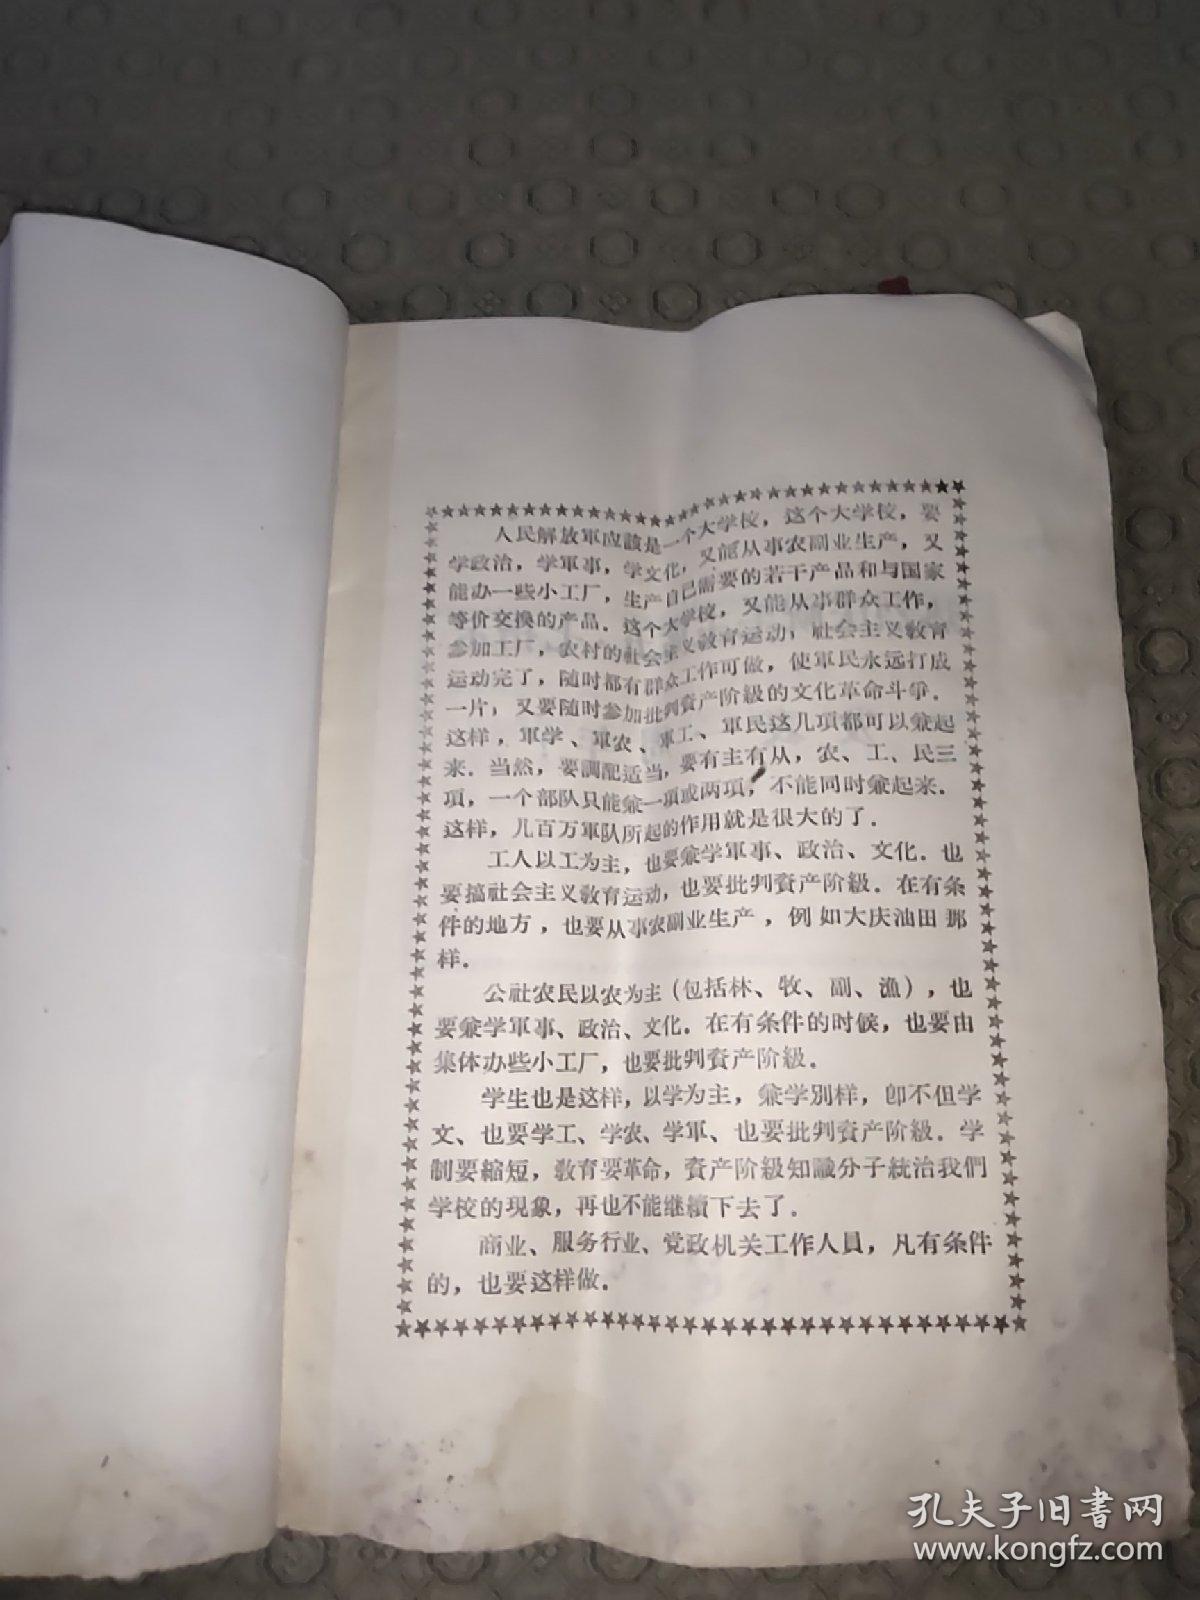 人民解放軍应該是一个大学校，这个大学校，要
学政治，学軍事，学文化，又能从事农副业生产，又
能办一些小工厂，生产自己需要的若干产品和与国家
等价交换的产品．这个大学校，又能从事群众工作，
参加工厂，农村的社会主义教育运动，社会主义教育
运动完了，随时都有群众工作可做，使軍民永远打成
一片，又要随时参加批判資产阶級的文化革命斗爭．
这样，軍学、軍农、軍工、軍民这几項都可以兼起
来．当然，要調配适当，要有主有从，农、工、民三
項，一个部队只能兼一項或两項，不能同时兼起来．
这样，几百万軍队所起的作用就是很大的了．
工人以工为主，也要兼学軍事、政治、文化．也
要搞社会主义教育运动，也要批判資产阶級．在有条
件的地方，也要从事农副业生产，例如大庆油田那
样．
公社农民以农为主（包括林、牧、副、漁），也
要兼学軍事、政治、文化．在有条件的时候，也要由
集体办些小工厂，也要批判資产阶級．
学生也是这样，以学为主，兼学別样，即不但学
文、也要学工、学农、学軍、也要批判資产阶級．学
制要縮短，教育要革命，資产阶級知識分子統治我們
学校的現象，再也不能継續下去了．
商业、服务行业、党政机关工作人員，凡有条件
的，也要这样做．
孔夫子旧書网
www.kongfz.com